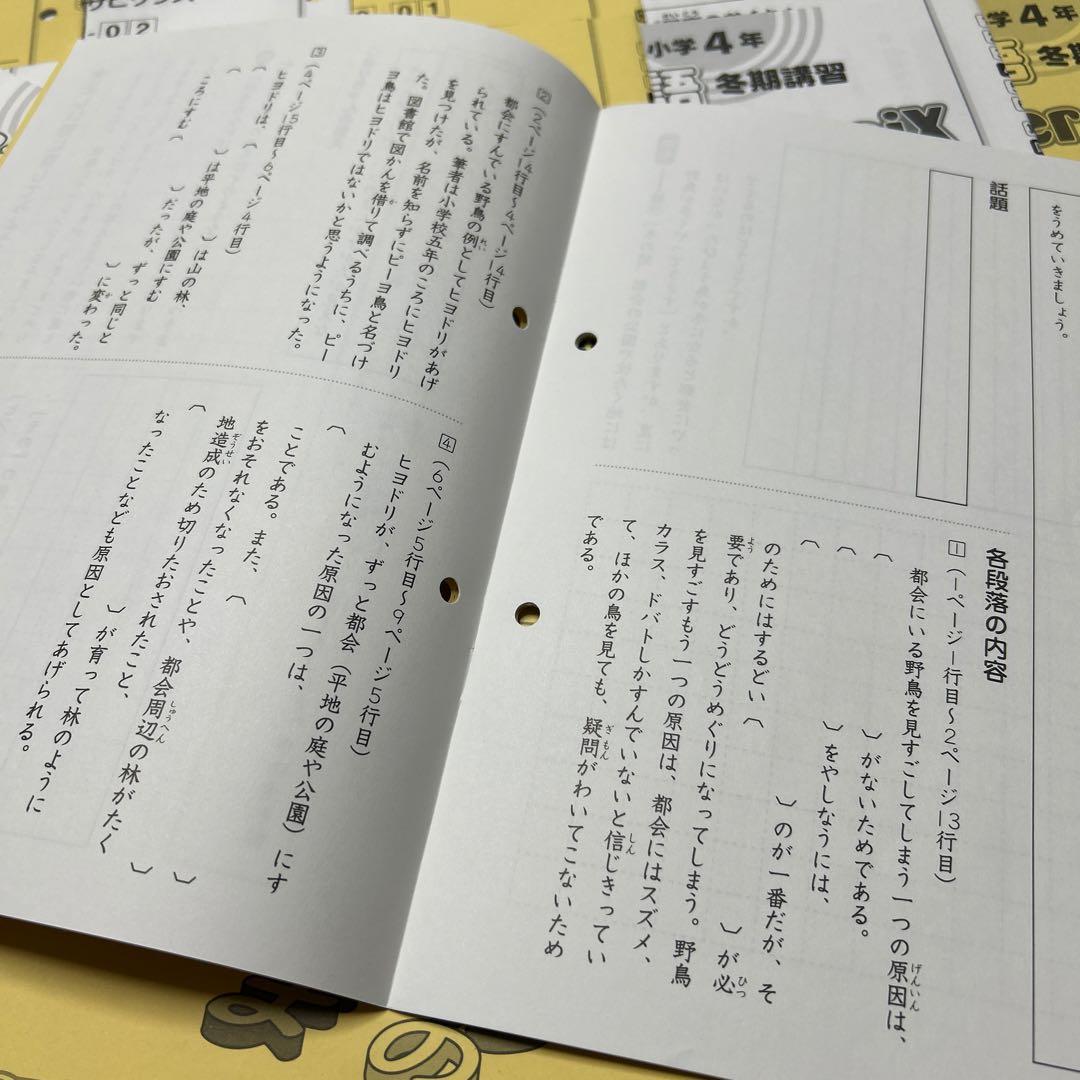 をうめていきましょう。
話題
各段落の内容
1（1ページ1行目～2ページ13行目）
都会にいる野鳥を見すごしてしまう一つの原因は、
〔　　　〕がないためである。
〔　　　〕をやしなうには、
〔　　　〕のが一番だが、そ
のためにはするどい〔　　　〕が必
要であり、どうどうめぐりになってしまう。野鳥
を見すごすもう一つの原因は、都会にはスズメ、
カラス、ドバトしかすんでいないと信じきってい
て、ほかの鳥を見ても、疑問がわいてこないため
である。
2（2ページ14行目～4ページ4行目）
都会にすんでいる野鳥の例としてヒヨドリがあげ
られている。筆者は小学校五年のころにヒヨドリ
を見つけたが、名前を知らずにピーヨ鳥と名づけ
た。図書館で図かんを借りて調べるうちに、ピー
ヨ鳥はヒヨドリではないかと思うようになった。
3（4ページ5行目～6ページ4行目）
ヒヨドリは、
〔　　　〕は山の林、
〔　　　〕は平地の庭や公園にすむ
〔　　　〕だったが、ずっと同じと
ころにすむ〔　　　〕に変わった。
4（6ページ5行目～9ページ5行目）
ヒヨドリが、ずっと都会（平地の庭や公園）にす
むようになった原因の一つは、
〔　　　〕
ことである。また、〔　　　〕
をおそれなくなったことや、都会周辺の林がたく
地造成のため切りたおされたこと、
〔　　　〕が育って林のように
なったことなども原因としてあげられる。
サピックス
-02
01
小学4年
冬期講習
学4年
冬期講習
の